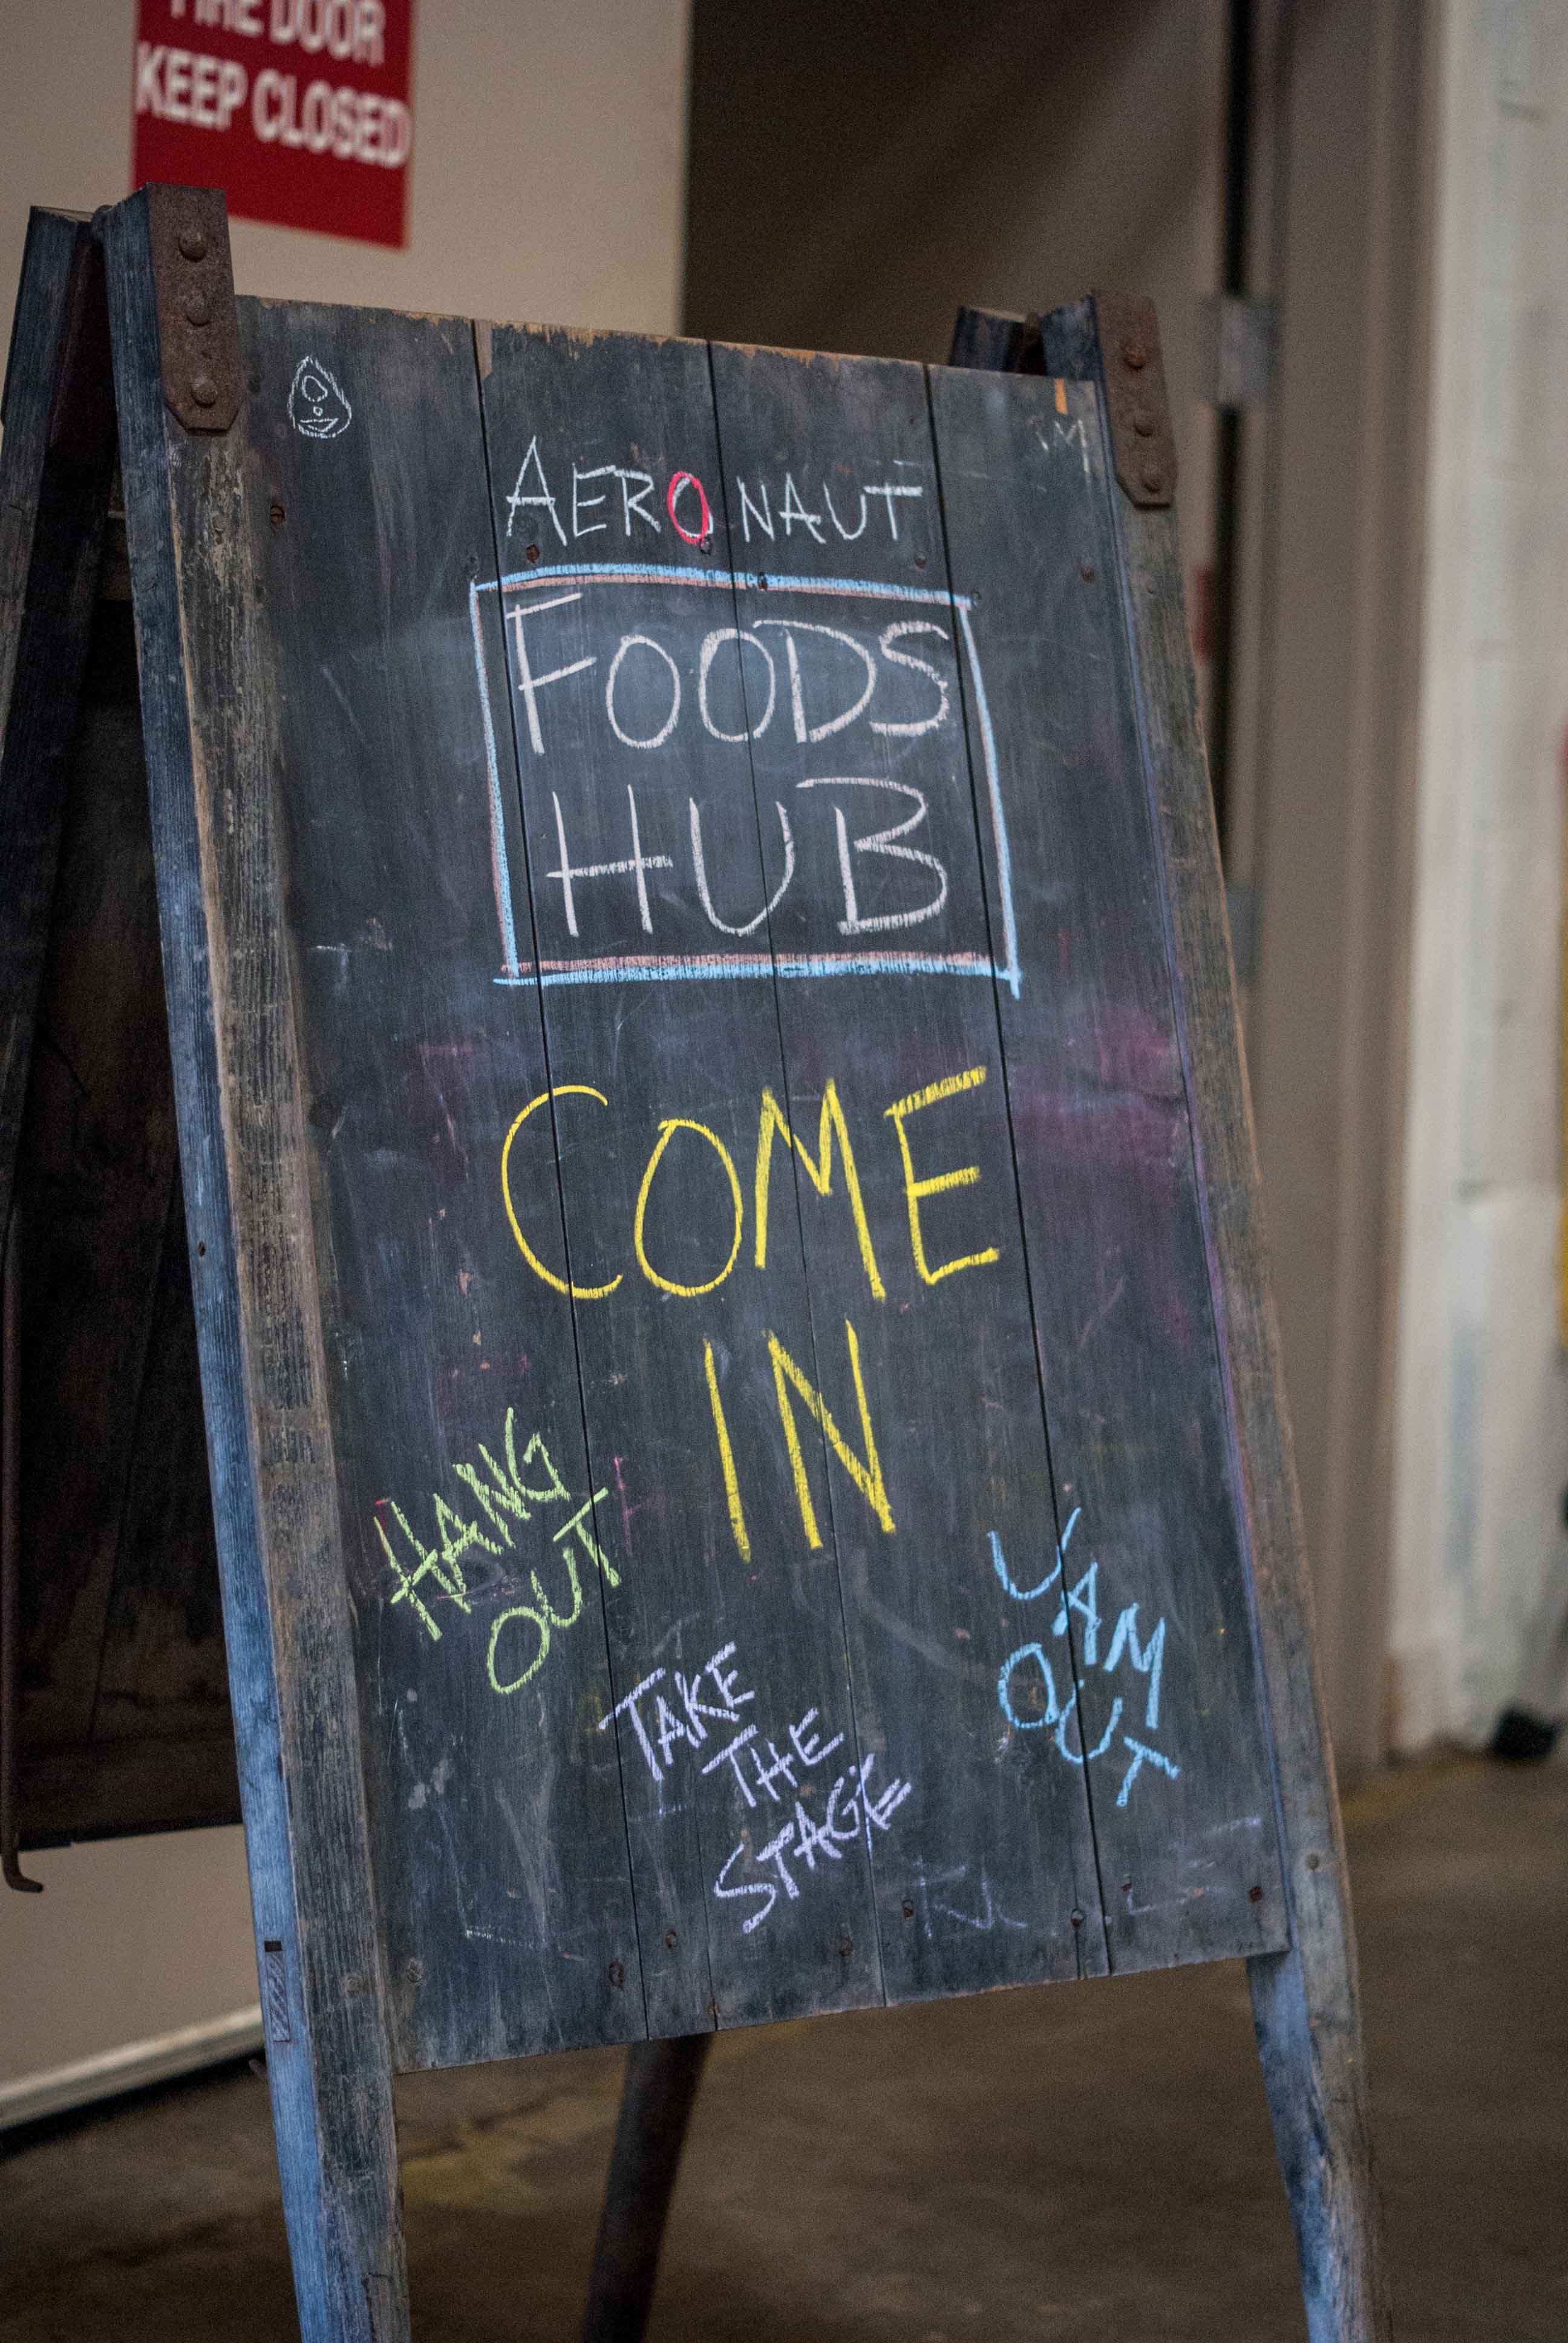 FIRE DOOR
KEEP CLOSED
AERONAUT
FOODS
HUB
COME
IN
HANG
OUT
TAKE
THE
STAGE
JAM
OUT